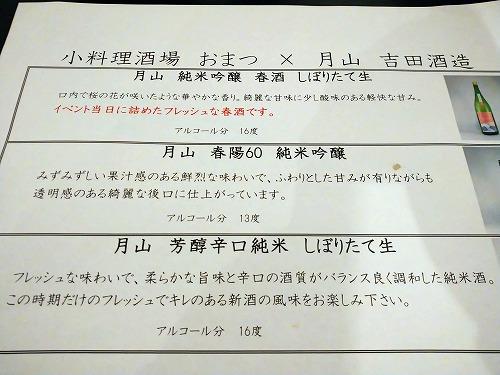 小料理酒場 おまつ × 月山 吉田酒造
月山 純米吟醸 春酒 しぼりたて生
口内で桜の花が咲いたような華やかな香り。綺麗な甘味に少し酸味のある軽快な甘み。
イベント当日に詰めたフレッシュな春酒です。
アルコール分 16度
月山 春陽60 純米吟醸
みずみずしい果汁感のある鮮烈な味わいで、ふわりとした甘みが有りながらも
透明感のある綺麗な後口に仕上がっています。
アルコール分 13度
月山 芳醇辛口純米 しぼりたて生
フレッシュな味わいで、柔らかな旨味と辛口の酒質がバランス良く調和した純米酒。
この時期だけのフレッシュでキレのある新酒の風味をお楽しみ下さい。
アルコール分 16度